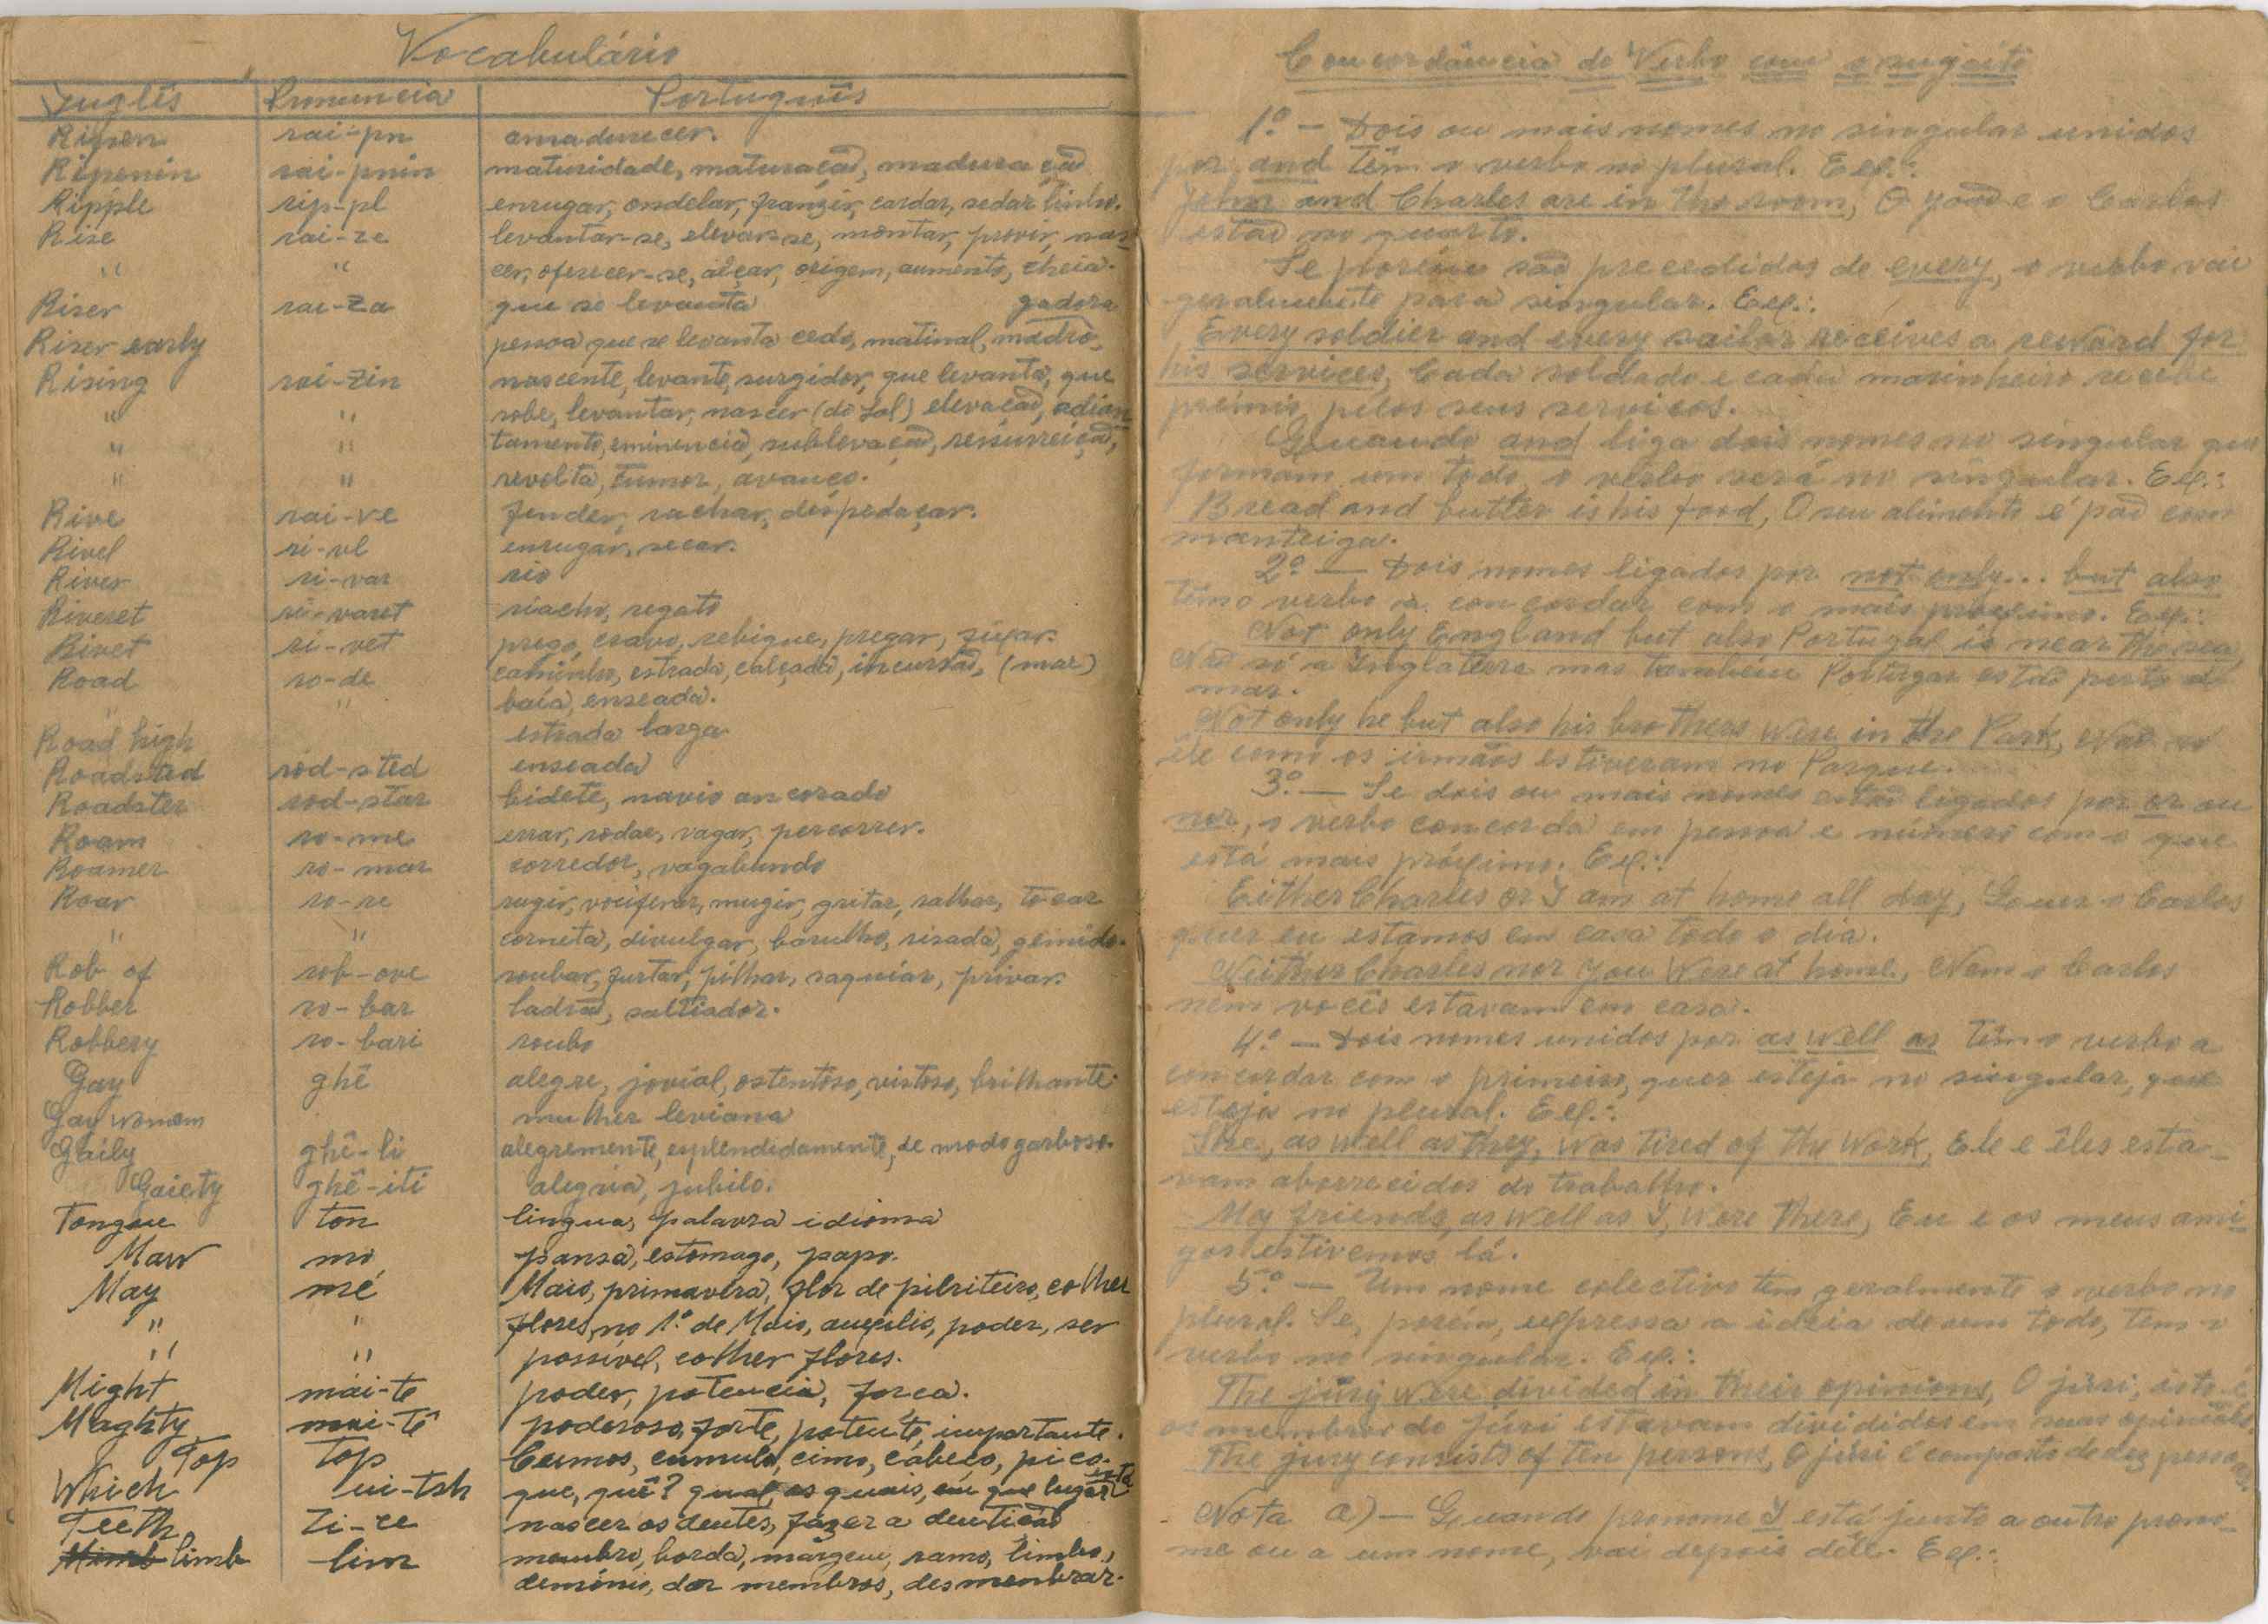 Vocabulário
Inglês Pronuncia Português
Ripen rai-pn amadurecer.
Ripenin rai-pnin maturidade, maturação, maduração
Ripple rip-pl enrugar, ondelar, franzir, cardar, sedar linho.
Rise rai-ze levantar-se, elevar-se, montar, prover, nas-
" " cer, oferecer-se, alçar, origem, aumento, cheia.
Riser rai-za que se levanta gadora
Riser early pessoa que se levanta cedo, matinal, madru-
Rising rai-zin nascente, levante, surgidor, que levanta, que
" " sobe, levantar, nascer (do sol) elevação, adian
" " tamento, eminencia, sublevação, ressurreição,
" " revolta, tumor, avanço.
Rive rai-ve fender, rachar, despedaçar.
Rivel ri-vl enrugar, secar.
River ri-var rio
Riveret ri-varet riacho, regato
Rivet ri-vet prego, cravo, rebique, pregar,
Road ro-de caminho, estrada, calçada, incursão, (mar)
" " baía, enseada.
Road high estrada larga
Roadsted rod-sted enseada
Roadster rod-star bidete, navio ancorado
Roam ro-me errar, rodar, vagar, percorrer.
Roamer ro-mar corredor, vagabundo
Roar ro-re rugir, vociferar, mugir, gritar, ralhar, tocar
" " corneta, divulgar, barulho, risada, gemido.
Rob of rob-ove roubar, furtar, pilhar, saquiar, privar.
Robber ro-bar ladrão, saltiador.
Robbery ro-bari roubo
Gay ghê alegre, jovial, ostentoso, vistoso, brilhante.
Gay womem mulher leviana
Gaily ghê-li alegremente, esplendidamente, de modo garboso.
Gaiety ghê-iti alegria, jubilo.
Tongue ton lingua, palavra idioma
Maw mo pansa, estomago, papo.
May mé Maio, primavera, flor de pilriteiro, colher
" " flores no 1º de Maio, auxilio, poder, ser
" " possível, colher flores.
Might mái-te poder, potencia, força.
Maghty mai-tê poderoso, forte, potente, importante.
Top top Cumos, cumulo, cimo, cabeço, pico.
Which ui-tsh que, quê? qual, os quais, em que lugar
Teeth ti-ce nascer os dentes, fazer a dentição
limb lim membro, borda, márgem, ramo, limbo,
demónio, dar membros, desmembrar.
Concordância do Verbo com o sugeito
1º. — Dois ou mais nomes no singular unidos
por and têm o verbo no plural. Ex.:
John and Charles are in the room, O João e o Carlos
estão no quarto.
Se porém são precedidos de every, o verbo vai
geralmente para singular. Ex.:
Every soldier and every sailor receives a reward for
his services, Cada soldado e cada marinheiro recebe
prémio pelos seus serviços.
Quando and liga dois nomes no singular que
formam um todo, o verbo será no singular. Ex.:
Bread and butter is his food, O seu alimento é pão com
manteiga.
2º — Dois nomes ligados por not only... but also
têm o verbo a concordar com o mais proximo. Ex.:
Not only England but also Portugal is near the sea,
Não só a Inglaterra mas também Portugal estão perto do
mar.
Not only he but also his brothers were in the Park, Não só
êle como os irmãos estiveram no Parque.
3º. — Se dois ou mais nomes estão ligados por or ou
nor, o verbo concorda em pessoa e número com o que
está mais próximo. Ex.:
Either Charles or I am at home all day, Quer o Carlos
quer eu estamos em casa todo o dia.
Neither Charles nor you were at home, Nem o Carlos
nem vocês estavam em casa.
4º. — Dois nomes unidos por as well as têm o verbo a
concordar com o primeiro, quer esteja no singular, quer
esteja no plural. Ex.:
She, as well as they, was tired of thy work, Ele e êles esta-
vam aborrecidos do trabalho.
My friends, as well as I, were there, Eu e os meus ami-
gos estivemos lá.
5º. — Um nome colectivo tem geralmente o verbo no
plural. Se, porém, expressa a ideia de um todo, tem o
verbo no singular. Ex.:
The jury were divided in their opinions, O júri, isto é,
os membros do júri estavam divididos em suas opiniões.
The jury consists of ten persons, O júri é composto de dez pessoas.
Nota a) — Quando pronome I está junto a outro prono-
me ou a um nome, vai depois dêle. Ex.: